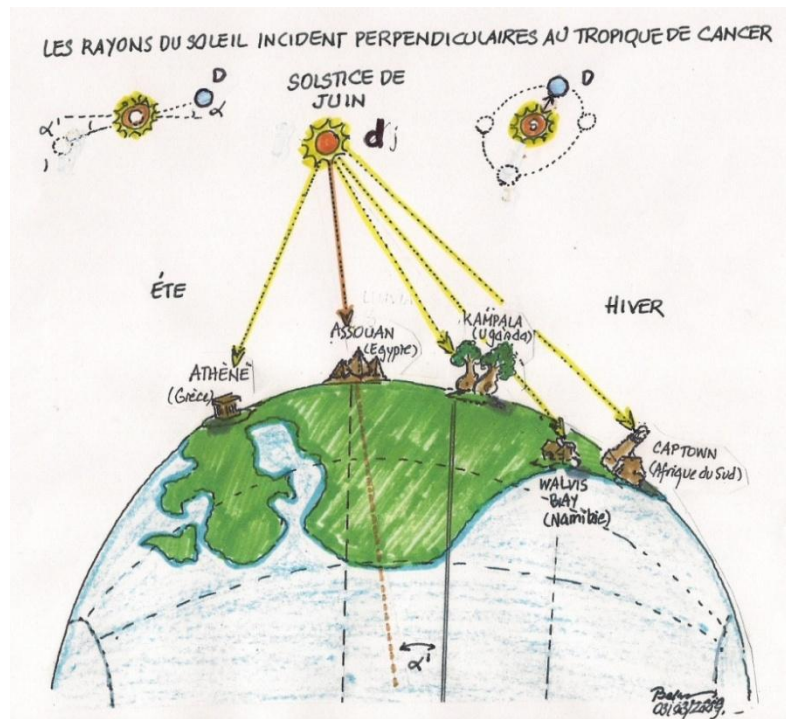 LES RAYONS DU SOLEIL INCIDENT PERPENDICULAIRES AU TROPIQUE DE CANCER
D
α
α
SOLSTICE DE
JUIN
dj
D
ÉTE
HIVER
ATHÈNE
(Grèce)
ASSOUAN
(Egypte)
KAMPALA
(Uganda)
WALVIS
-BAY
(Namibie)
CAPTOWN
(Afrique du Sud)
αi